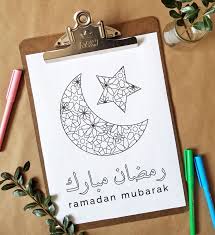 رمضان مبارك
ramadan mubarak